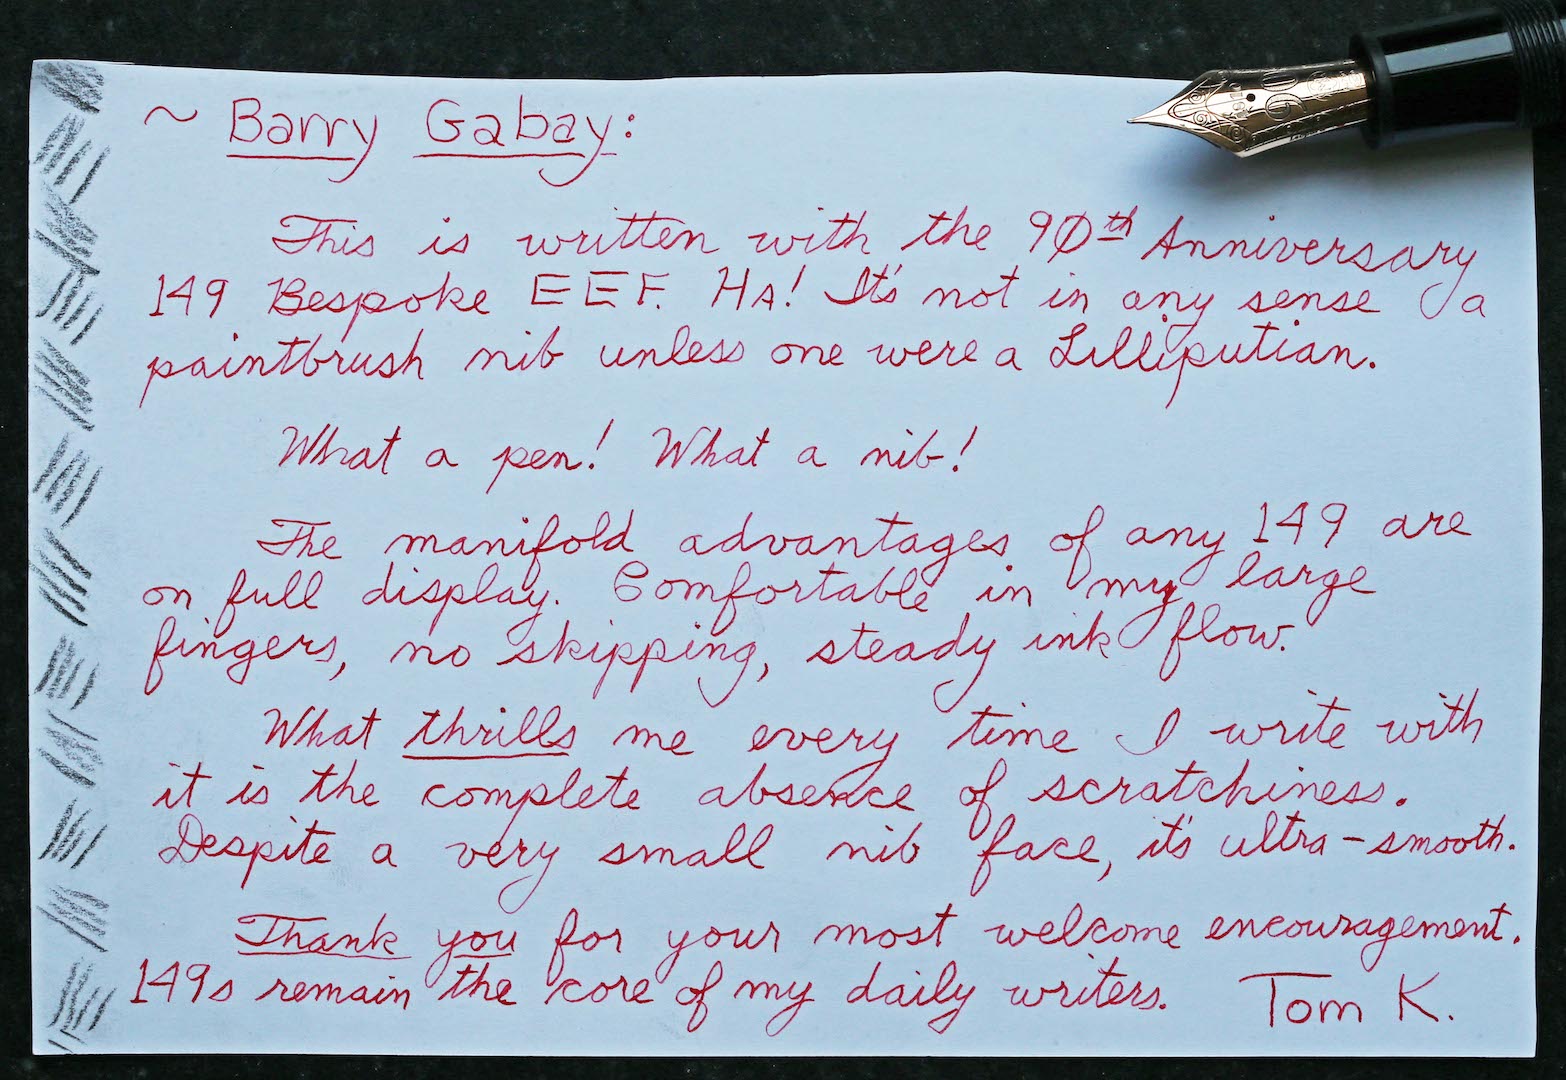 ~ Barry Gabay:
This is written with the 90th Anniversary
149 Bespoke EEF. HA! It's not in any sense a
paintbrush nib unless one were a Lilliputian.
What a pen! What a nib!
The manifold advantages of any 149 are
on full display. Comfortable in my large
fingers, no skipping, steady ink flow.
What thrills me every time I write with
it is the complete absence of scratchiness.
Despite a very small nib face, it's ultra-smooth.
Thank you for your most welcome encouragement.
149s remain the core of my daily writers. Tom K.